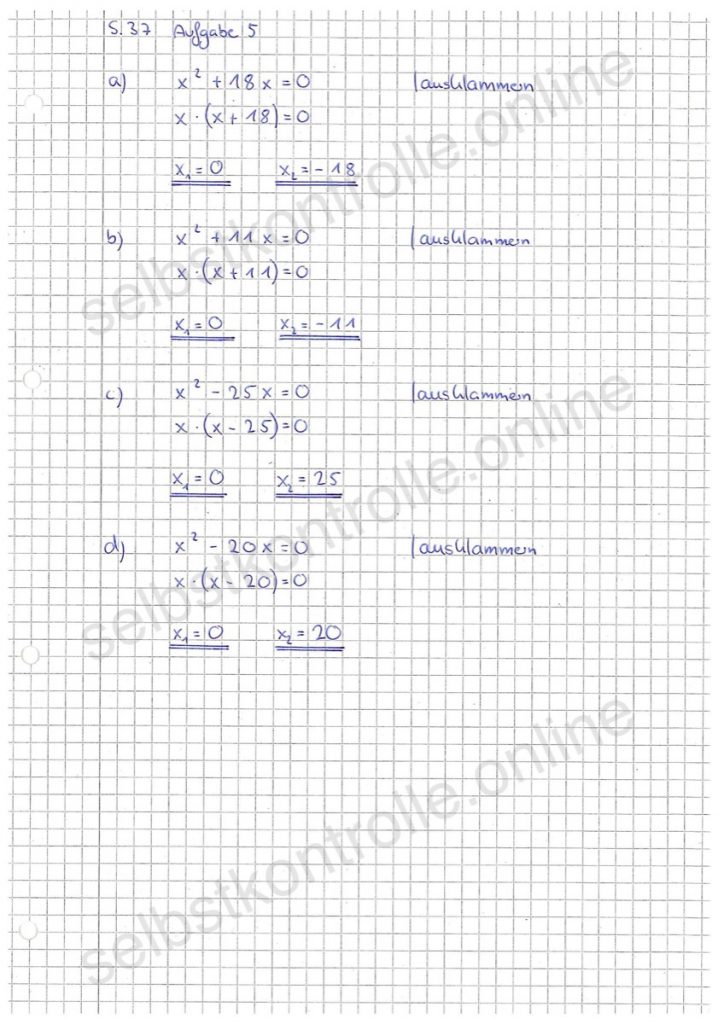 S. 37 Aufgabe 5
a) x² + 18x = 0 | ausklammern
x · (x + 18) = 0
x₁ = 0 x₂ = - 18
b) x² + 11x = 0 | ausklammern
x · (x + 11) = 0
x₁ = 0 x₂ = - 11
c) x² - 25x = 0 | ausklammern
x · (x - 25) = 0
x₁ = 0 x₂ = 25
d) x² - 20x = 0 | ausklammern
x · (x - 20) = 0
x₁ = 0 x₂ = 20
selbstkontrolle.online
selbstkontrolle.online
selbstkontrolle.online